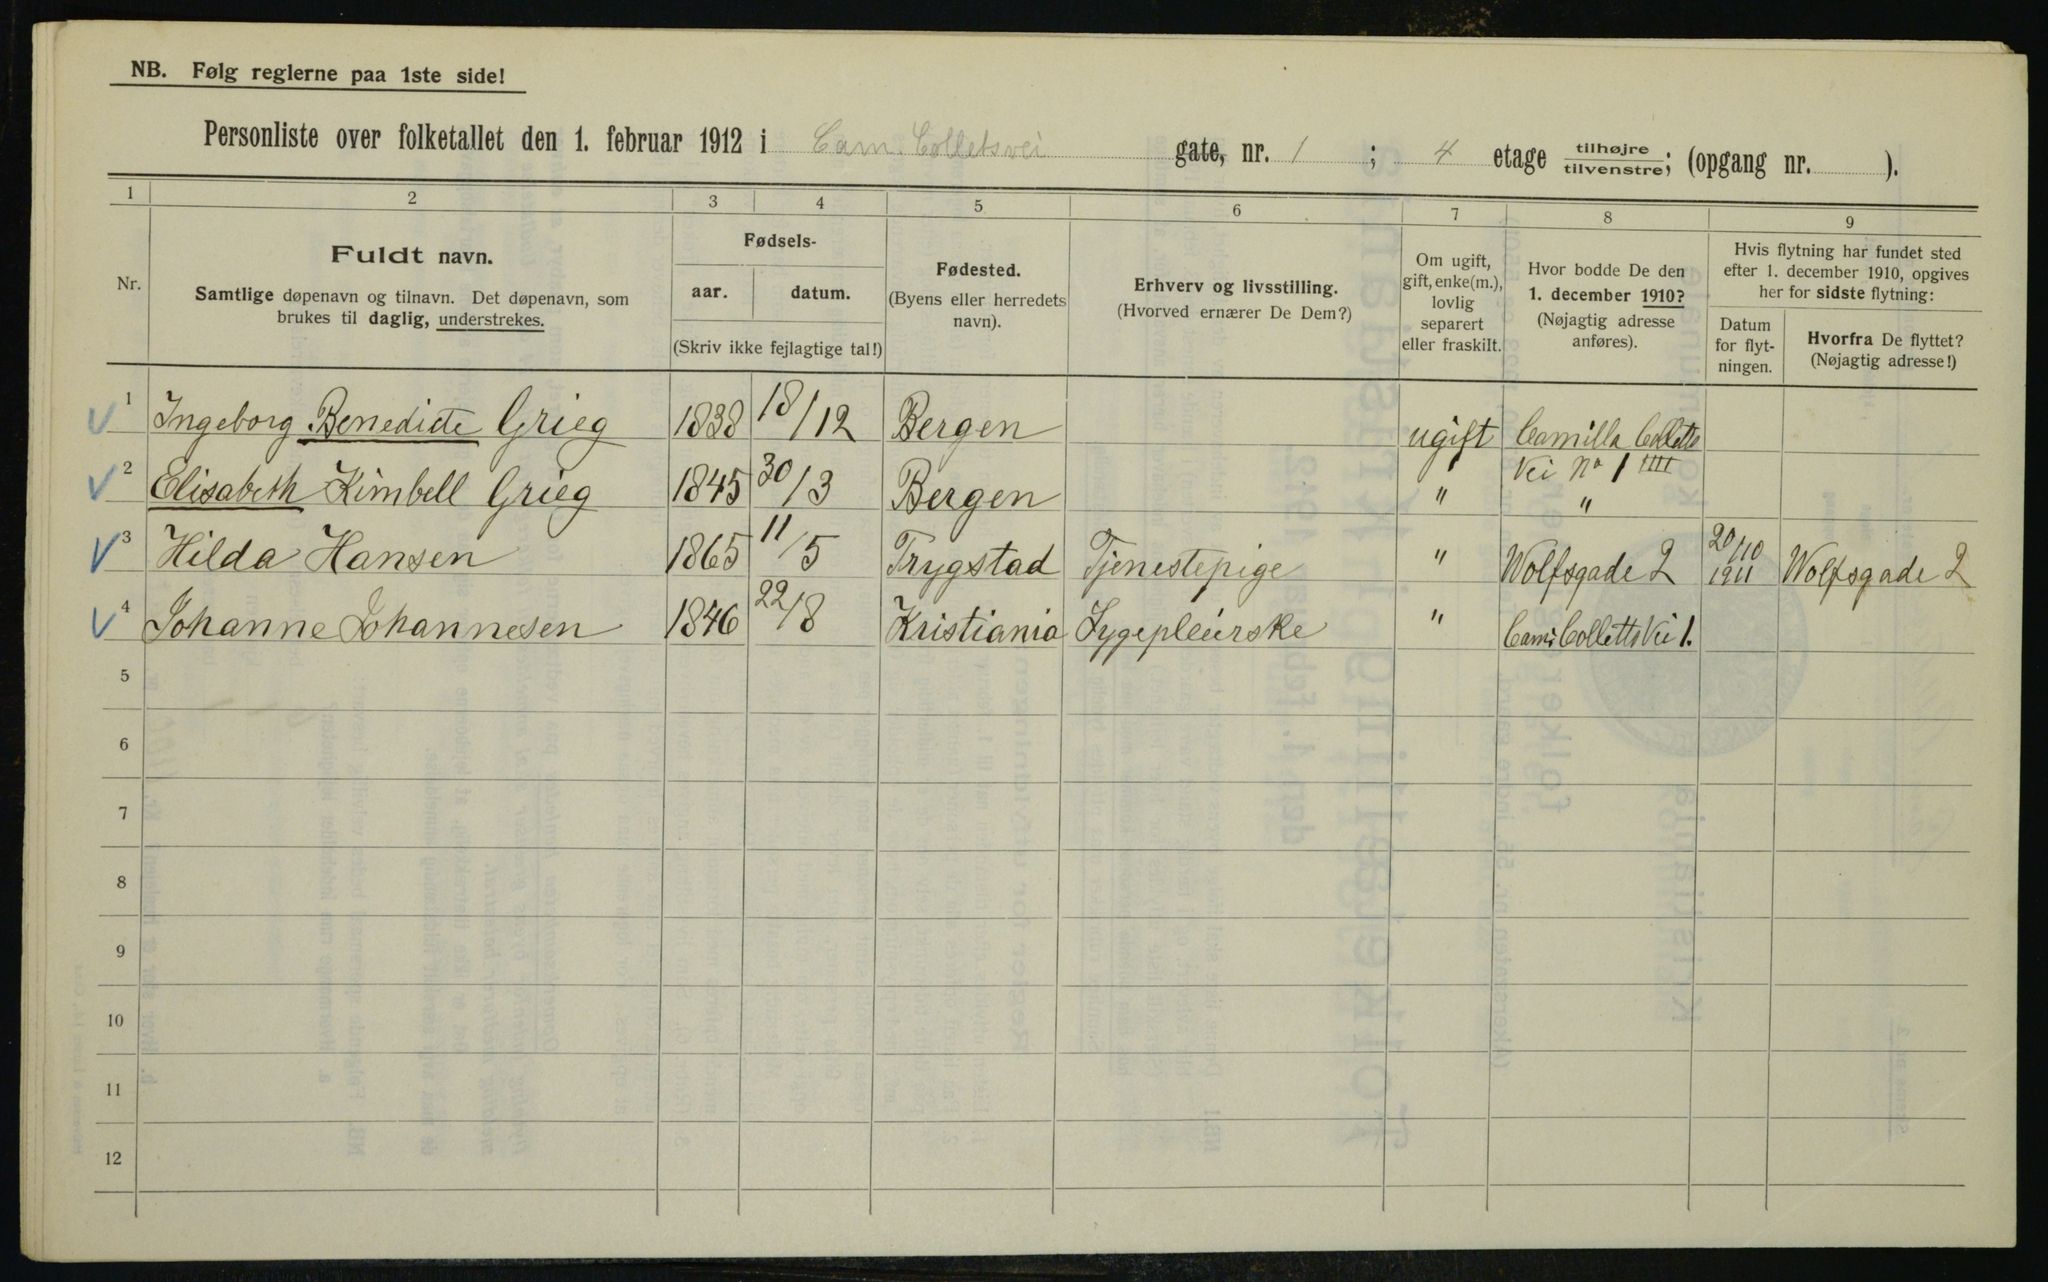 NB. Følg reglerne paa 1ste side!
Personliste over folketallet den 1. februar 1912 i Cam. Colletsvei gate, nr. 1; 4 etage tilhøjre/tilvenstre; (opgang nr. ).
1 2 3 4 5 6 7 8 9
Nr.
Fuldt navn.
Samtlige døpenavn og tilnavn. Det døpenavn, som
brukes til daglig, understrekes.
Fødsels-
aar. datum.
(Skriv ikke fejlagtige tal!)
Fødested.
(Byens eller herredets
navn).
Erhverv og livsstilling.
(Hvorved ernærer De Dem?)
Om ugift,
gift, enke(m.),
lovlig
separert
eller fraskilt.
Hvor bodde De den
1. december 1910?
(Nøjagtig adresse
anføres).
Hvis flytning har fundet sted
efter 1. december 1910, opgives
her for sidste flytning:
Datum
for flyt-
ningen.
Hvorfra De flyttet?
(Nøjagtig adresse!)
1 Ingeborg Benedicte Grieg 1838 18/12 Bergen ugift Camilla Colletts
Vei No 1 IIII
2 Elisabeth Kimbell Grieg 1845 30/3 Bergen " "
3 Hilda Hansen 1865 11/5 Trygstad Tjenestepige " Wolfsgade 2 20/10 1911 Wolfsgade 2
4 Johanne Johannesen 1846 22/8 Kristiania Sygepleierske " Cam. Colletts Vei 1.
5
6
7
8
9
10
11
12